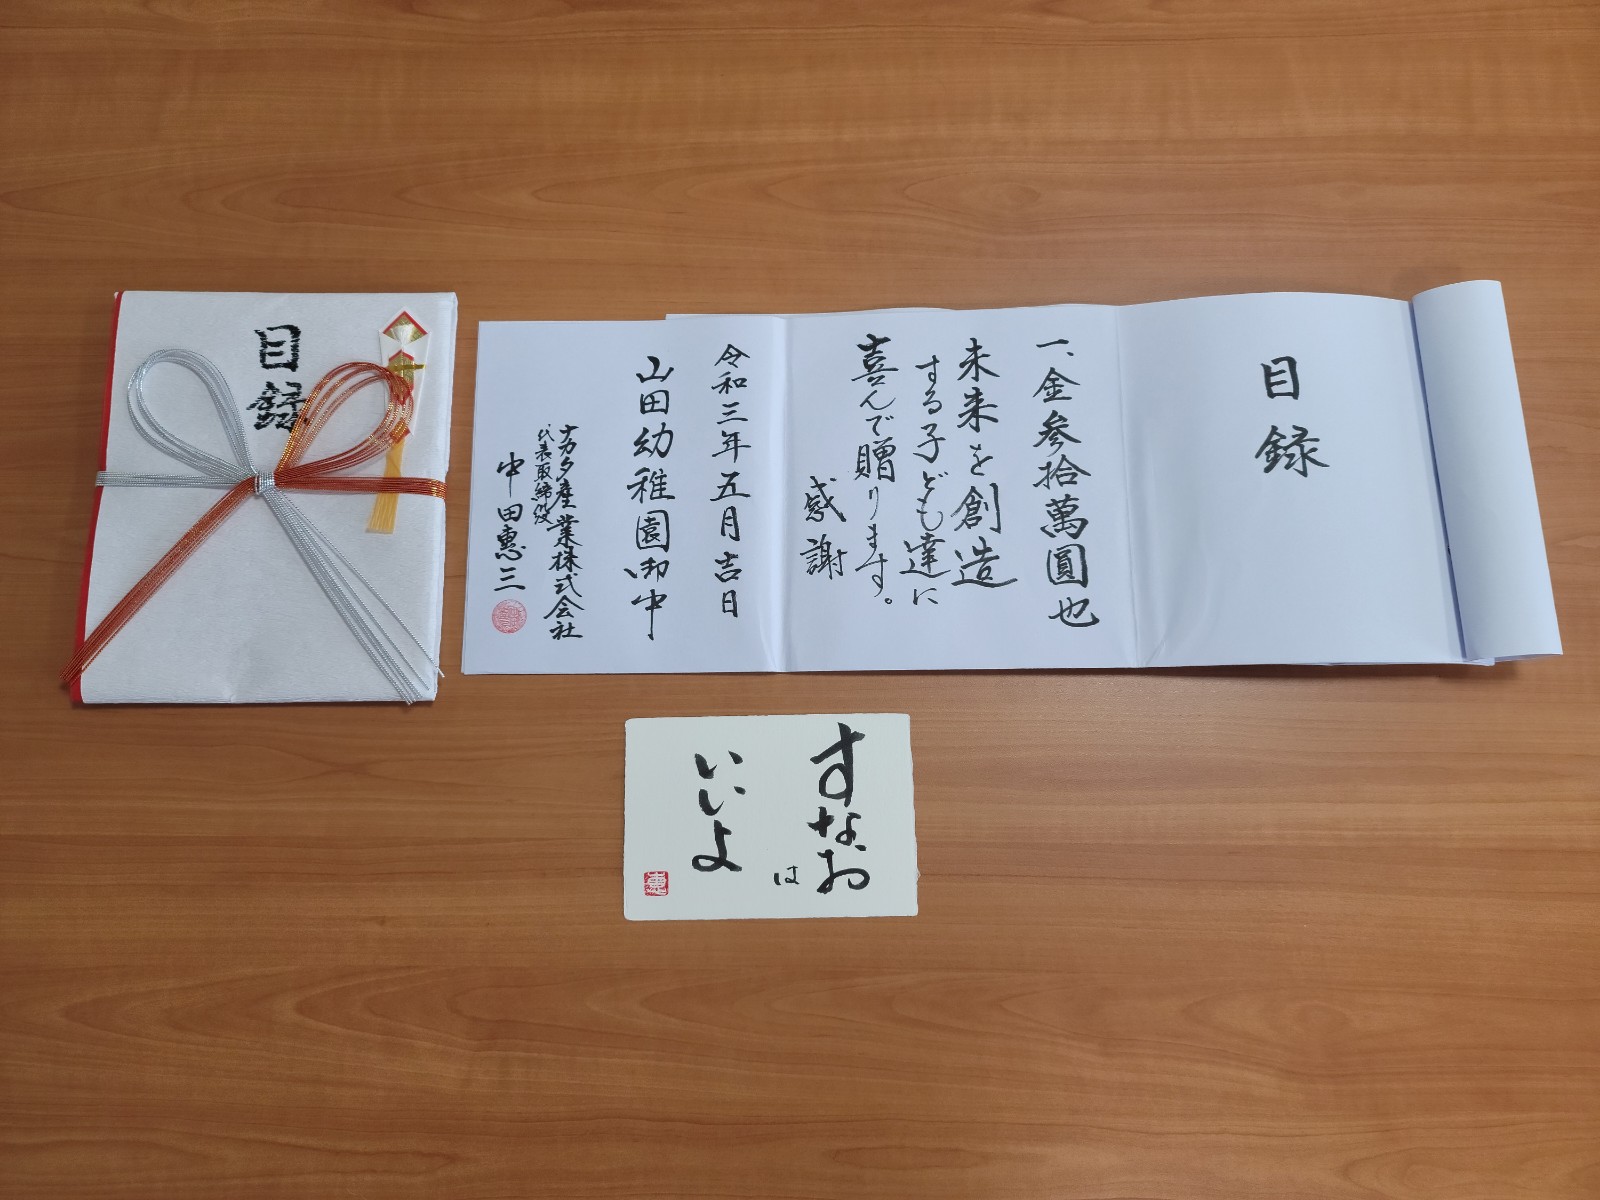 目録
目録
一、金参拾萬圓也
未来を創造
する子ども達に
喜んで贈ります。
感謝
令和三年五月吉日
山田幼稚園御中
ナカタ産業株式会社
代表取締役
中田惠三
すなお
は
いいよ
恵